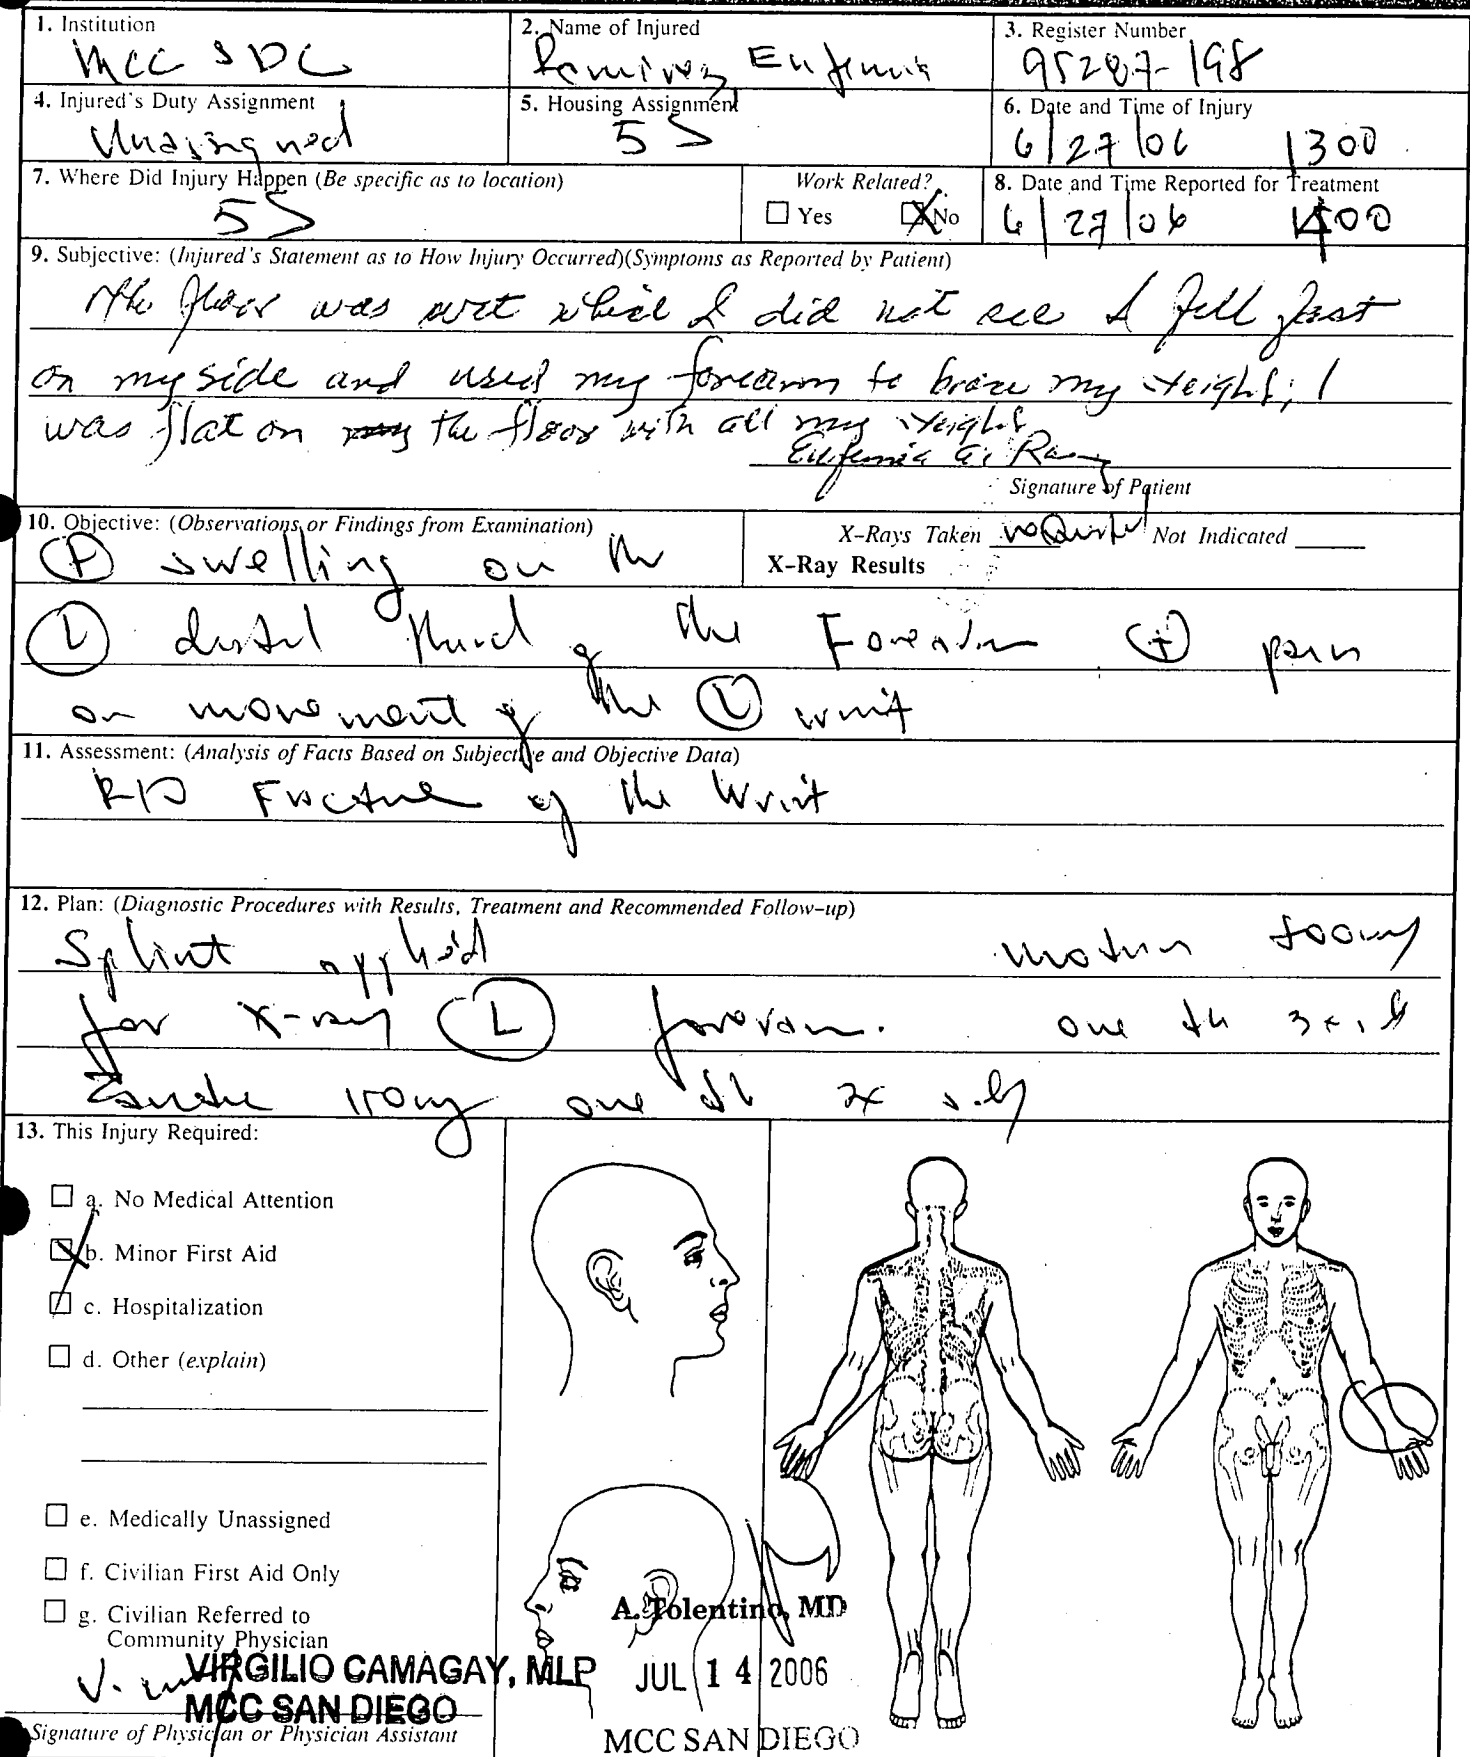 1. Institution
MCC SDC
2. Name of Injured
Ramirez Eufemia
3. Register Number
95287-198
4. Injured's Duty Assignment
Unasingned
5. Housing Assignment
5S
6. Date and Time of Injury
6/27/06 1300
7. Where Did Injury Happen (Be specific as to location)
5S
Work Related?
Yes No
8. Date and Time Reported for Treatment
6/27/06 1400
9. Subjective: (Injured's Statement as to How Injury Occurred)(Symptoms as Reported by Patient)
the floor was wet which I did not see I fell fast
on my side and used my forearm to brace my weight; I
was flat on the floor with all my weight
Eufemia G. Ramz
Signature of Patient
10. Objective: (Observations or Findings from Examination)
X-Rays Taken Not Indicated
X-Ray Results
(+) swelling on the
(L) distal third of the Forearm (+) pain
on movement of the (L) wrist
11. Assessment: (Analysis of Facts Based on Subjective and Objective Data)
R/O Fracture of the Wrist
12. Plan: (Diagnostic Procedures with Results, Treatment and Recommended Follow-up)
Splint applied Motrin
for X-ray (L) forearm. one
one
13. This Injury Required:
a. No Medical Attention
b. Minor First Aid
c. Hospitalization
d. Other (explain)
e. Medically Unassigned
f. Civilian First Aid Only
g. Civilian Referred to
Community Physician
A. Tolentino, MD
VIRGILIO CAMAGAY, MLP
JUL 14 2006
MCC SAN DIEGO
Signature of Physician or Physician Assistant
MCC SAN DIEGO